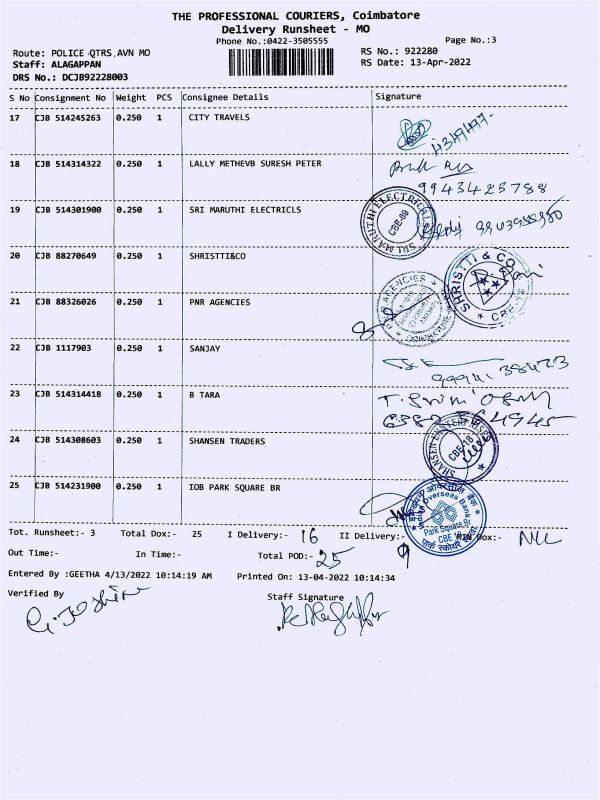 THE PROFESSIONAL COURIERS, Coimbatore
Delivery Runsheet - MO
Phone No.:0422-3505555
Page No.:3
Route: POLICE QTRS,AVN MO
RS No.: 922280
Staff: ALAGAPPAN
RS Date: 13-Apr-2022
DRS No.: DCJB92228003
S No Consignment No Weight PCS Consignee Details Signature
17 CJB 514245263 0.250 1 CITY TRAVELS
18 CJB 514314322 0.250 1 LALLY METHEVB SURESH PETER
9943425788
19 CJB 514301900 0.250 1 SRI MARUTHI ELECTRICLS
SRI MARUTHI ELECTRICALS
CBE-08
20 CJB 88270649 0.250 1 SHRISTTI&CO
SHRISTTI & CO
21 CJB 88326026 0.250 1 PNR AGENCIES
22 CJB 1117903 0.250 1 SANJAY
23 CJB 514314418 0.250 1 B TARA
24 CJB 514308603 0.250 1 SHANSEN TRADERS
CBE-18
25 CJB 514231900 0.250 1 IOB PARK SQUARE BR
Indian Overseas Bank
Park Square Br
CBE
Tot. Runsheet:- 3 Total Dox:- 25 I Delivery:- 16 II Delivery:- 9 Dox:- NIL
Out Time:- In Time:- Total POD:- 25
Entered By :GEETHA 4/13/2022 10:14:19 AM Printed On: 13-04-2022 10:14:34
Verified By Staff Signature